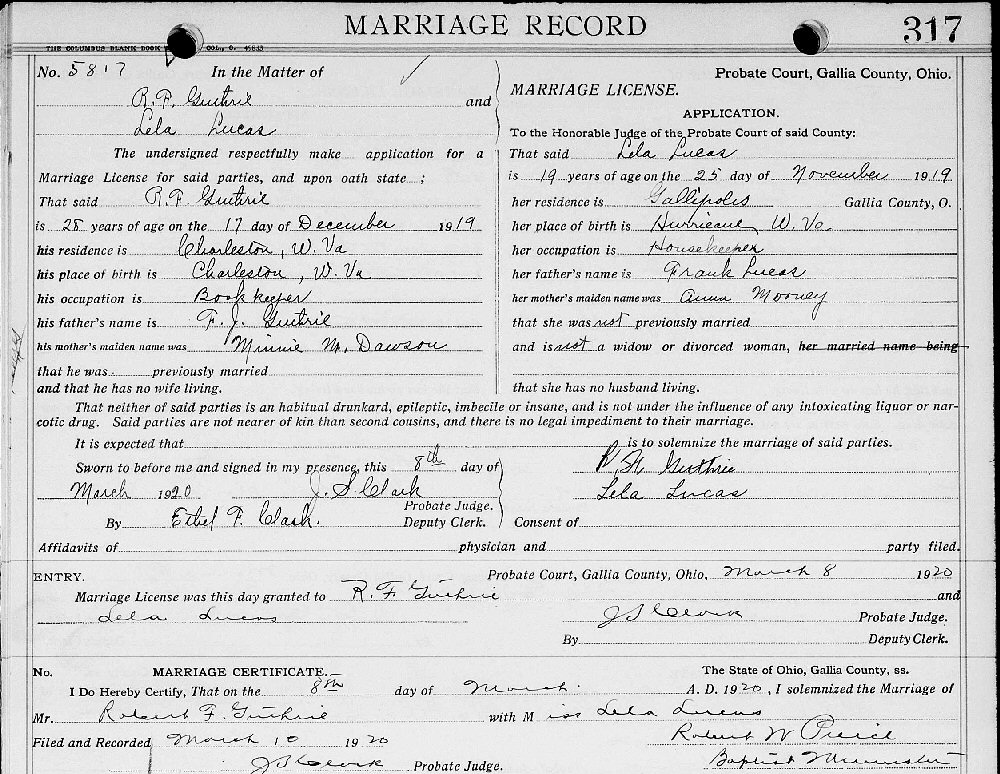 MARRIAGE RECORD
317
THE COLUMBUS BLANK BOOK COL., O. 45633
No. 5817 In the Matter of
R. F. Guthrie and
Lela Lucas
The undersigned respectfully make application for a
Marriage License for said parties, and upon oath state ;
That said R F Guthrie
is 25 years of age on the 17 day of December 1919
his residence is Charleston, W. Va
his place of birth is Charleston, W. Va
his occupation is Book keeper
his father's name is F. J. Guthrie
his mother's maiden name was Minnie M. Dawson
that he was previously married
and that he has no wife living.
Probate Court, Gallia County, Ohio.
MARRIAGE LICENSE.
APPLICATION.
To the Honorable Judge of the Probate Court of said County:
That said Lela Lucas
is 19 years of age on the 25 day of November 1919
her residence is Gallipolis Gallia County, O.
her place of birth is Hurricane, W. Va.
her occupation is Housekeeper
her father's name is Frank Lucas
her mother's maiden name was Mooney
that she was not previously married
and is not a widow or divorced woman, her married name being
that she has no husband living.
That neither of said parties is an habitual drunkard, epileptic, imbecile or insane, and is not under the influence of any intoxicating liquor or nar-
cotic drug. Said parties are not nearer of kin than second cousins, and there is no legal impediment to their marriage.
It is expected that is to solemnize the marriage of said parties.
Sworn to before me and signed in my presence, this 8th day of
March 1920 J. S Clark
Probate Judge.
By Ethel F. Clark. Deputy Clerk.
Guthrie
Lela Lucas
Consent of
Affidavits of physician and party filed.
ENTRY. Probate Court, Gallia County, Ohio, March 8 1920
Marriage License was this day granted to R. F. Guthrie and
Lela Lucas J S Clark Probate Judge.
By Deputy Clerk.
No. MARRIAGE CERTIFICATE. The State of Ohio, Gallia County, ss.
I Do Hereby Certify, That on the 8th day of March A. D. 1920, I solemnized the Marriage of
Mr. Robert F. Guthrie with Miss Lela Lucas
Filed and Recorded March 10 1920 Robert W Pierce
J S Clark Probate Judge. Baptist Minister